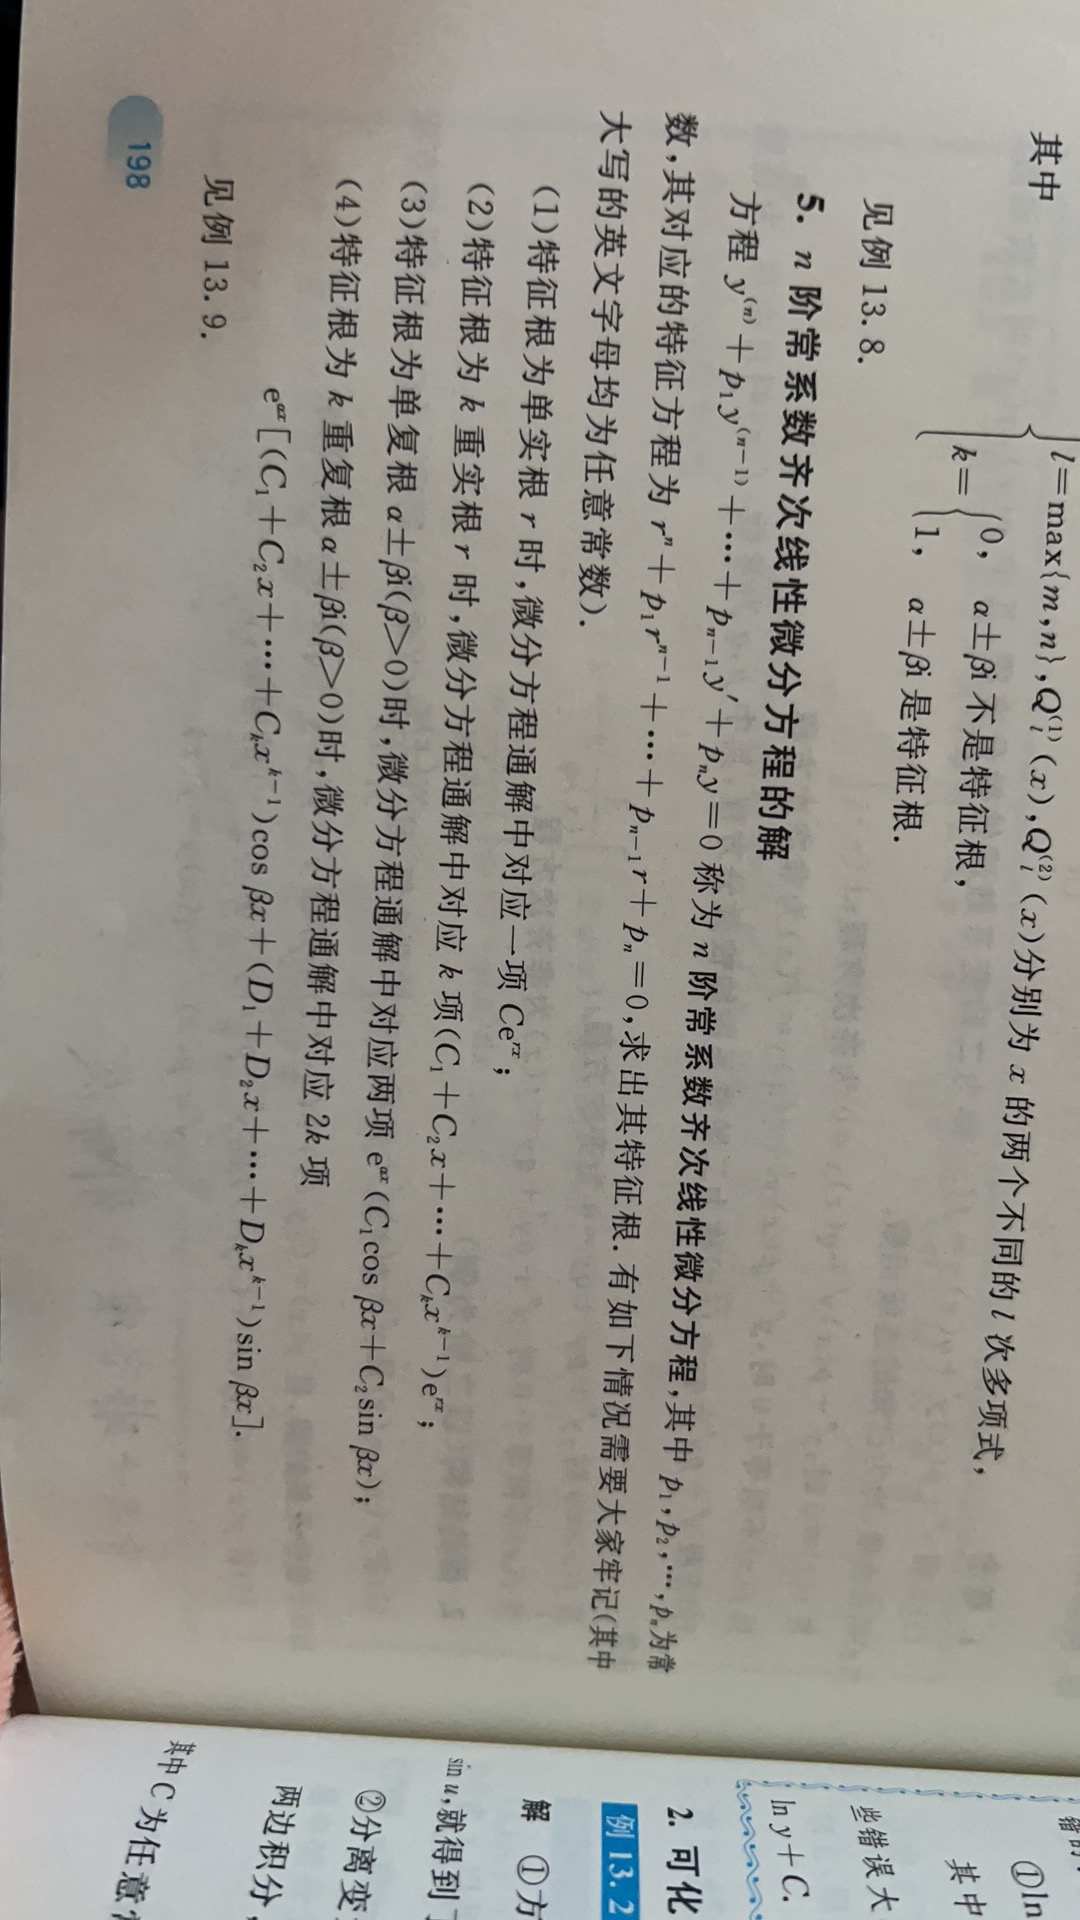 其中
l=max{m,n},Q_l^{(1)}(x),Q_l^{(2)}(x)分别为 x 的两个不同的 l 次多项式,
k={0, α±βi 不是特征根,
1, α±βi 是特征根.
见例 13.8.
5. n 阶常系数齐次线性微分方程的解
方程 y^{(n)}+p_1y^{(n-1)}+…+p_{n-1}y′+p_ny=0 称为 n 阶常系数齐次线性微分方程,其中 p_1,p_2,…,p_n为常
数,其对应的特征方程为 r^n+p_1r^{n-1}+…+p_{n-1}r+p_n=0,求出其特征根.有如下情况需要大家牢记(其中
大写的英文字母均为任意常数).
(1)特征根为单实根 r 时,微分方程通解中对应一项 Ce^{rx};
(2)特征根为 k 重实根 r 时,微分方程通解中对应 k 项(C_1+C_2x+…+C_kx^{k-1})e^{rx};
(3)特征根为单复根 α±βi(β>0)时,微分方程通解中对应两项 e^{αx}(C_1cos βx+C_2sin βx);
(4)特征根为 k 重复根 α±βi(β>0)时,微分方程通解中对应 2k 项
e^{αx}[(C_1+C_2x+…+C_kx^{k-1})cos βx+(D_1+D_2x+…+D_kx^{k-1})sin βx].
见例 13.9.
198
①ln
其中
些错误大
ln y+C.
2. 可化
例 13.2
解 ①方
sin u,就得到
②分离变
两边积分,
其中 C 为任意